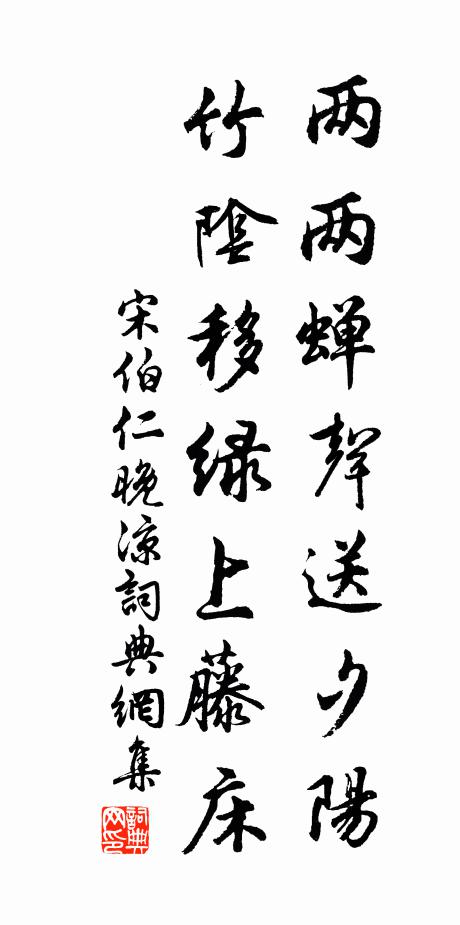 两两蝉聲送夕陽
竹陰移绿上藤床
宋伯仁晚凉詞典網集
詞典网印